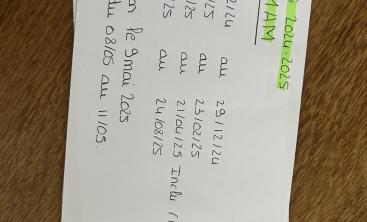 2024-2025
AM
2/24 au 29/12/24
/25 au 23/02/25
/25 au 21/04/25 Inclu
/25 au 24/08/25
le 9 mai 2025
du 08/05 au 11/05.